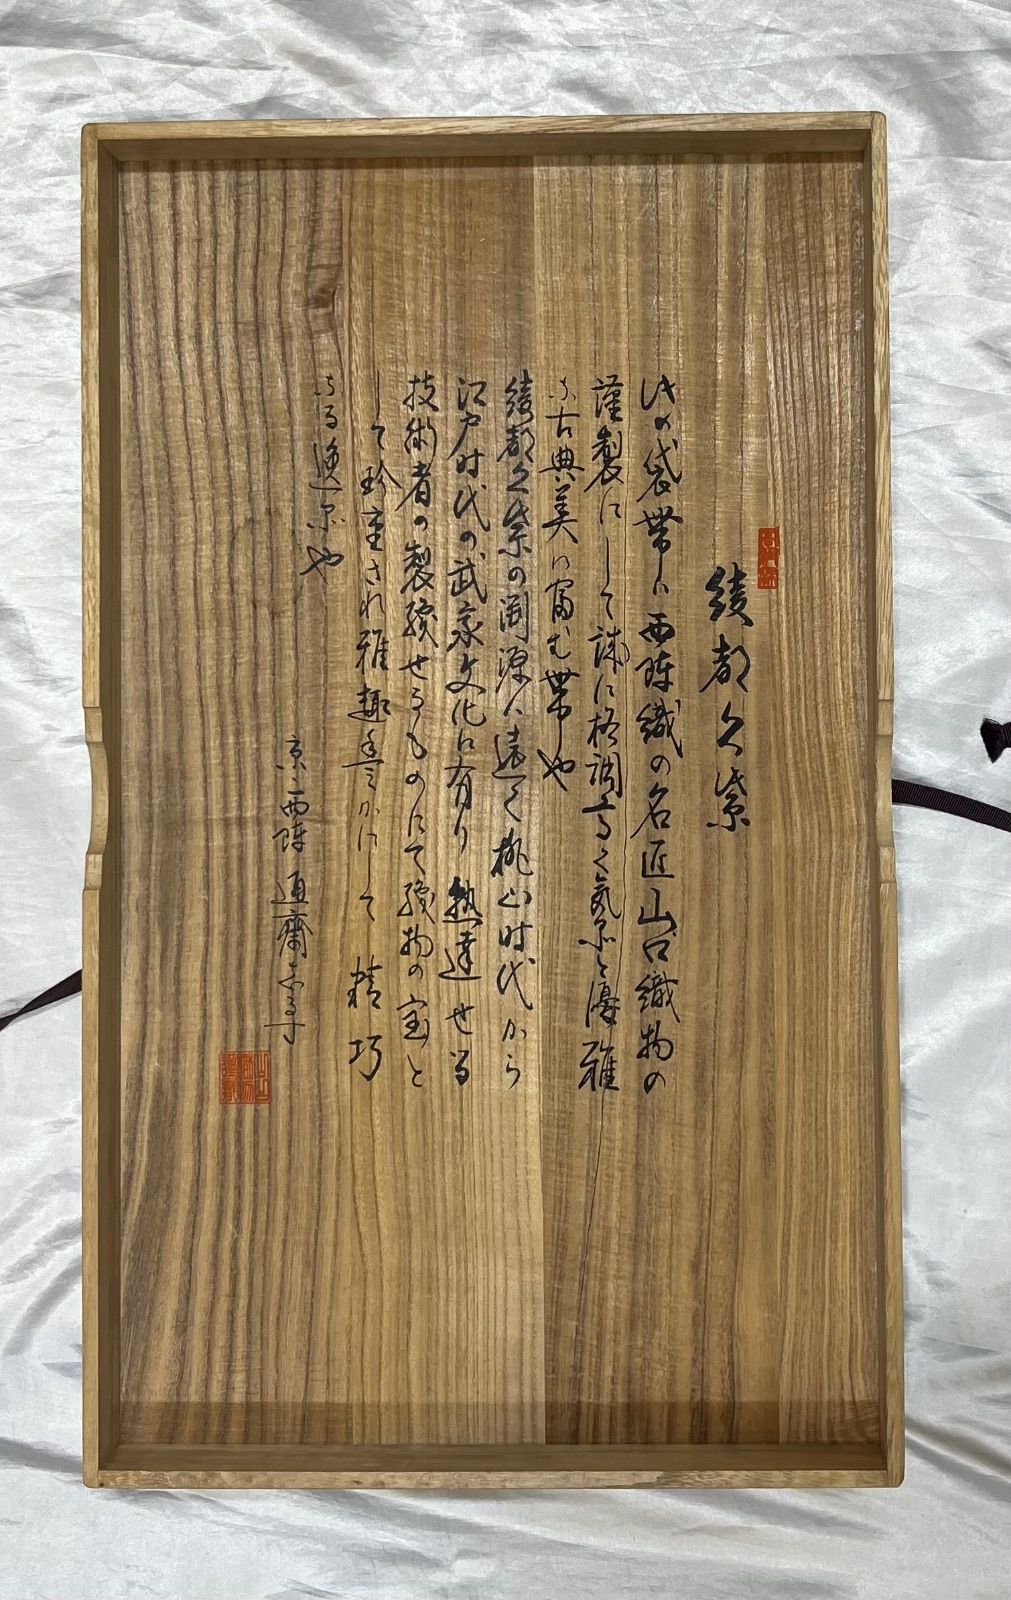 綾都久紫
此の袋帯は西陣織の名匠山口織物の
謹製にして誠に格調高く気品と優雅
な古典美に富む帯也
綾都久紫の淵源は遠く桃山时代から
江戸时代の武家文化に有り 熟達せる
技術者の製織せるものにて織物の宝と
して珍重され雅趣豊かにして 精巧
なる逸品也
京西陣 通斎